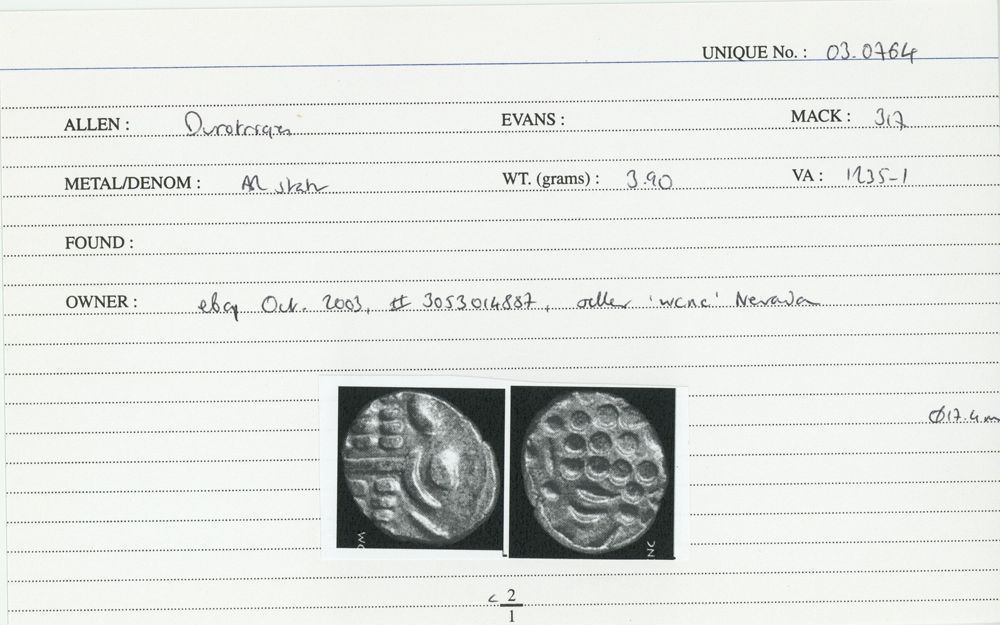 UNIQUE No. : 03.0764
ALLEN : Durotriges EVANS : MACK : 317
METAL/DENOM : AR stater WT. (grams) : 3.90 VA : 1235-1
FOUND :
OWNER : ebay Oct. 2003, # 3053014887, seller 'wcnc' Nevada
Ø17.4m
c 2
1